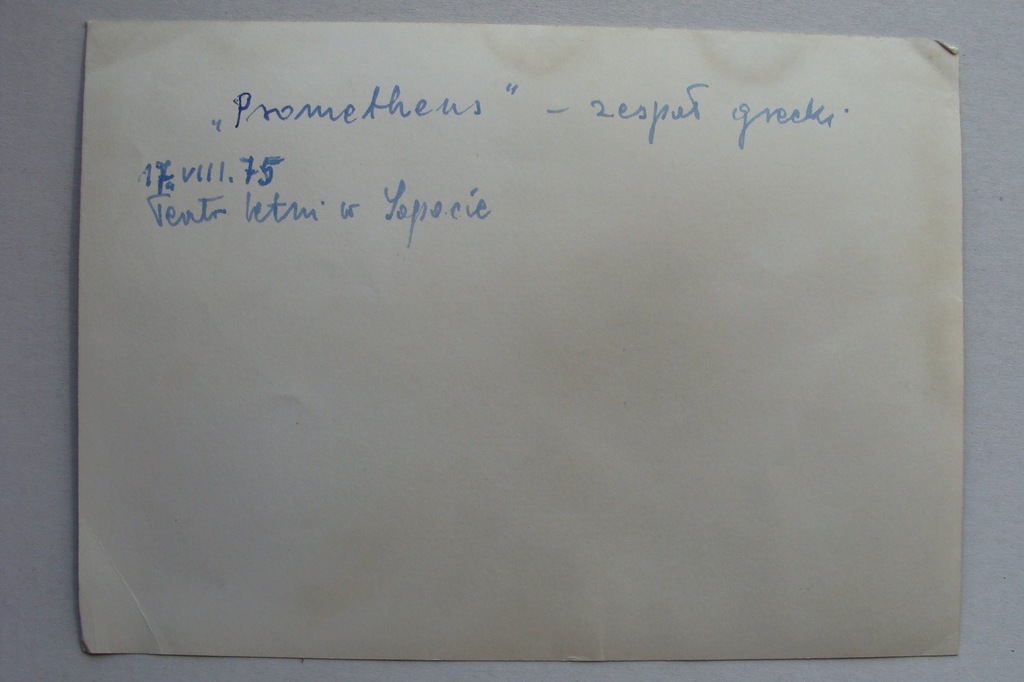 „Prometheus" – zespół grecki
17. VIII. 75
Teatr letni w Sopocie